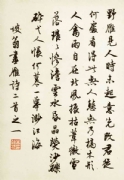 野雁見人時未起意先改君從
何處看得此無人態無乃槁木形
人禽兩自在北風振枯葦微雪
落璀璀慘澹雲水昏晶熒沙礫
碎弋人悵何慕一舉渺江海
坡翁畫雁詩二首之一